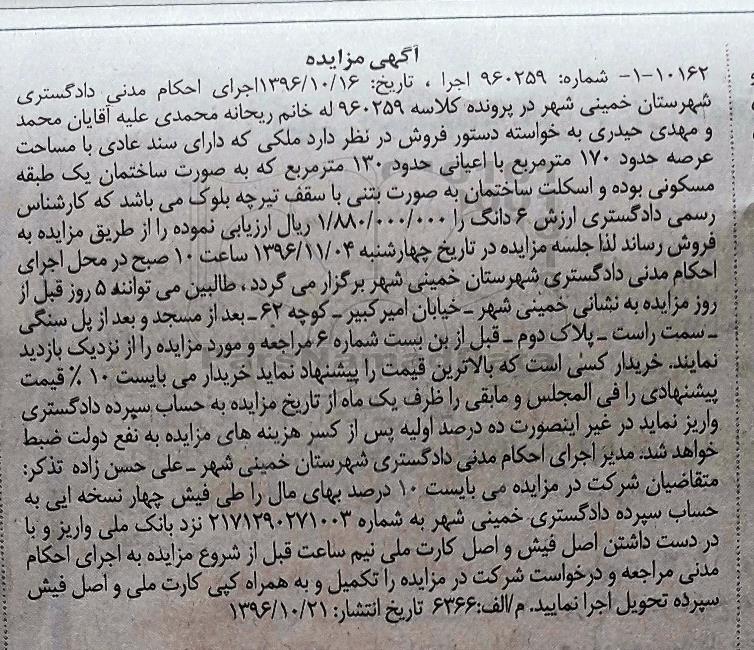 آگهی مزایده
۱۰۱۶۲-۱-۱- شماره: ۹۶۰۲۵۹ اجرا ، تاریخ: ۱۳۹۶/۱۰/۱۶اجرای احکام مدنی دادگستری
شهرستان خمینی شهر در پرونده کلاسه ۹۶۰۲۵۹ له خانم ریحانه محمدی علیه آقایان محمد
و مهدی حیدری به خواسته دستور فروش در نظر دارد ملکی که دارای سند عادی با مساحت
عرصه حدود ۱۷۰ مترمربع با اعیانی حدود ۱۳۰ مترمربع که به صورت ساختمان یک طبقه
مسکونی بوده و اسکلت ساختمان به صورت بتنی با سقف تیرچه بلوک می باشد که کارشناس
رسمی دادگستری ارزش ۶ دانگ را ۱/۸۸۰/۰۰۰/۰۰۰ ریال ارزیابی نموده را از طریق مزایده به
فروش رساند لذا جلسه مزایده در تاریخ چهارشنبه ۱۳۹۶/۱۱/۰۴ ساعت ۱۰ صبح در محل اجرای
احکام مدنی دادگستری شهرستان خمینی شهر برگزار می گردد ، طالبین می توانند ۵ روز قبل از
روز مزایده به نشانی خمینی شهر ـ خیابان امیرکبیر ـ کوچه ۶۲ ـ بعد از مسجد و بعد از پل سنگی
ـ سمت راست ـ پلاک دوم ـ قبل از بن بست شماره ۶ مراجعه و مورد مزایده را از نزدیک بازدید
نمایند. خریدار کسی است که بالاترین قیمت را پیشنهاد نماید خریدار می بایست ۱۰ ٪ قیمت
پیشنهادی را فی المجلس و مابقی را ظرف یک ماه از تاریخ مزایده به حساب سپرده دادگستری
واریز نماید در غیر اینصورت ده درصد اولیه پس از کسر هزینه های مزایده به نفع دولت ضبط
خواهد شد. مدیر اجرای احکام مدنی دادگستری شهرستان خمینی شهر ـ علی حسن زاده تذکر:
متقاضیان شرکت در مزایده می بایست ۱۰ درصد بهای مال را طی فیش چهار نسخه ایی به
حساب سپرده دادگستری خمینی شهر به شماره ۲۱۷۱۲۹۰۲۷۱۰۰۳ نزد بانک ملی واریز و با
در دست داشتن اصل فیش و اصل کارت ملی نیم ساعت قبل از شروع مزایده به اجرای احکام
مدنی مراجعه و درخواست شرکت در مزایده را تکمیل و به همراه کپی کارت ملی و اصل فیش
سپرده تحویل اجرا نمایید. م/الف:۶۳۶۶ تاریخ انتشار: ۱۳۹۶/۱۰/۲۱